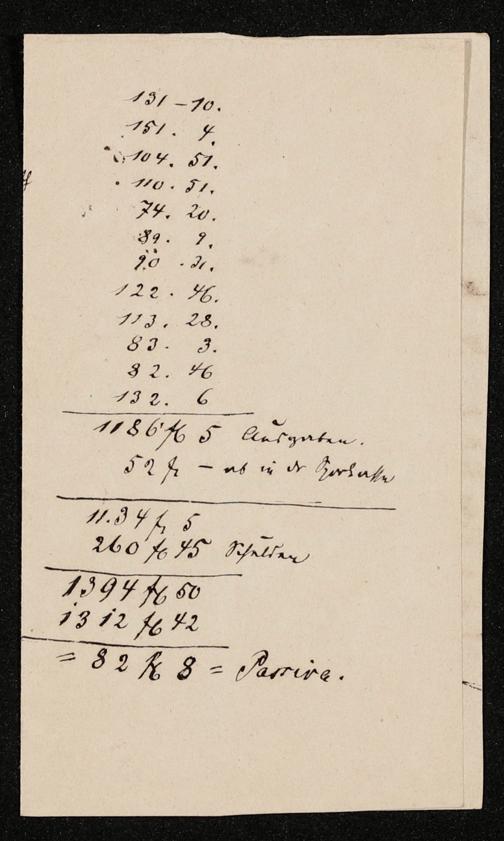 131 – 10.
151. 4.
104. 51.
110. 51.
74. 20.
89. 9.
90. 31.
122. 46.
113. 28.
83. 3.
82. 46
132. 6
1186 fl 5 Ausgaben.
52 fl – ab in dr Sparkasse
11.34 fl 5
260 fl 45 Schulden
1394 fl 50
1312 fl 42
= 82 fl 8 = Passiva.